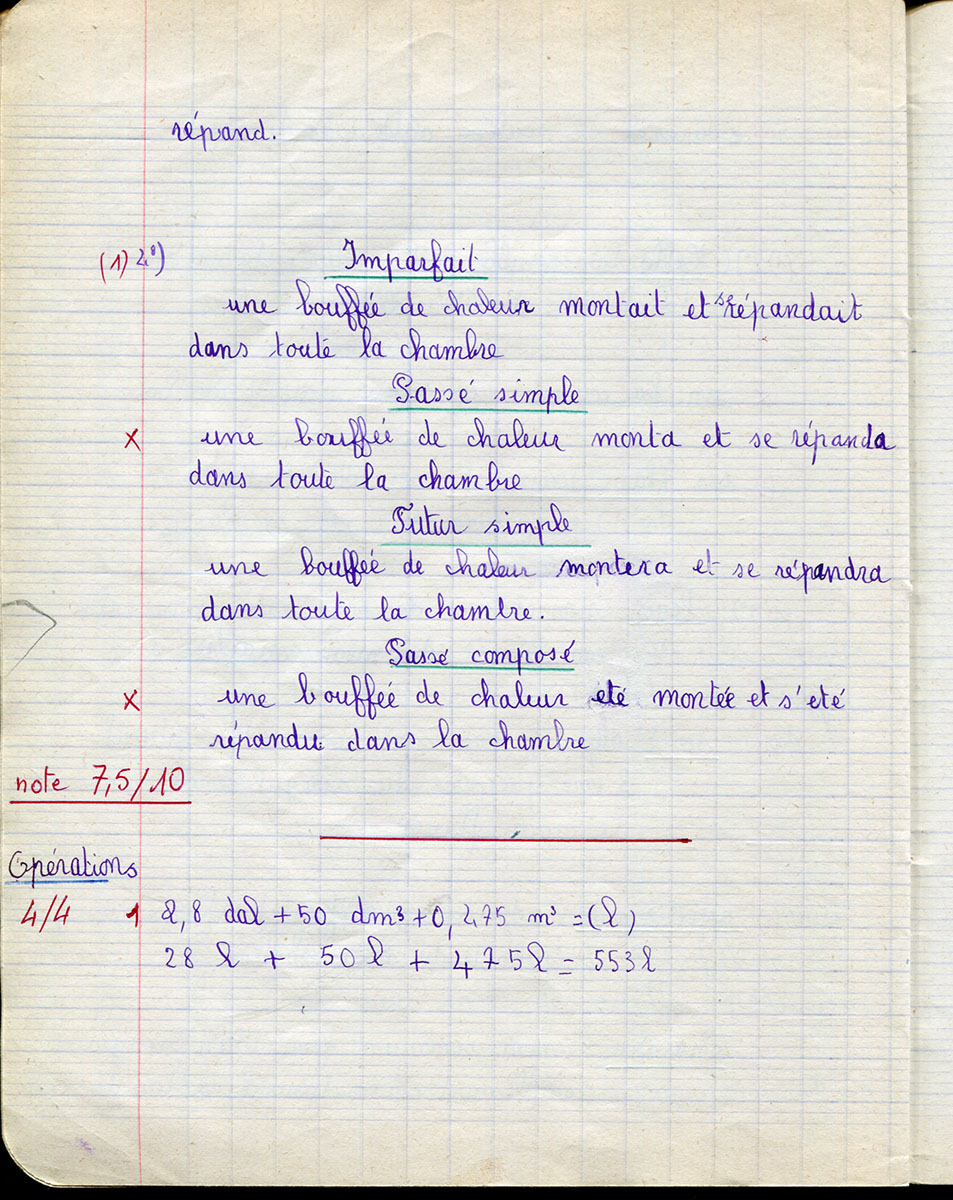 répand.
(1) 2°) Imparfait
une bouffée de chaleur montait et se répandait
dans toute la chambre
Passé simple
x une bouffée de chaleur monta et se répanda
dans toute la chambre
Futur simple
une bouffée de chaleur montera et se répandra
dans toute la chambre.
Passé composé
x une bouffée de chaleur été montée et s'eté
répandu dans la chambre
note 7,5/10
Opérations
4/4 1 2,8 dal + 50 dm³ + 0,475 m³ = (l)
28 l + 50 l + 475 l = 553 l